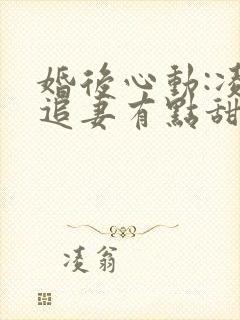 婚後心動:凌
追妻有點甜
凌翁